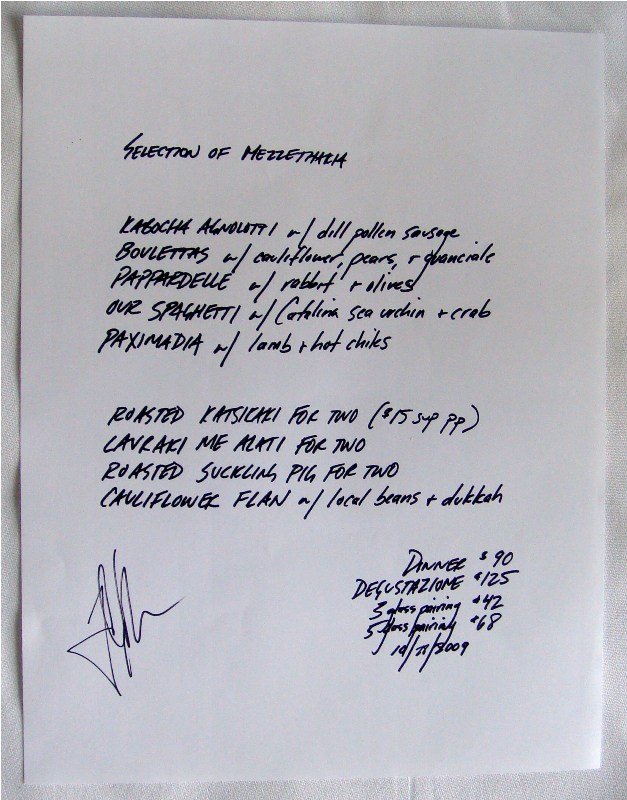 SELECTION OF MEZZETHAKIA
KABOCHA AGNOLOTTI w/ dill pollen sausage
BOULETTAS w/ cauliflower, pears, + guanciale
PAPPARDELLE w/ rabbit + olives
OUR SPAGHETTI w/ Catalina sea urchin + crab
PAXIMADIA w/ lamb + hot chiks
ROASTED KATSIKAKI FOR TWO ($15 sup pp)
LAVRAKI ME ALATI FOR TWO
ROASTED SUCKLING PIG FOR TWO
CAULIFLOWER FLAN w/ local beans + dukkah
DINNER $90
DEGUSTAZIONE $125
3 glass pairing $42
5 glass pairing $68